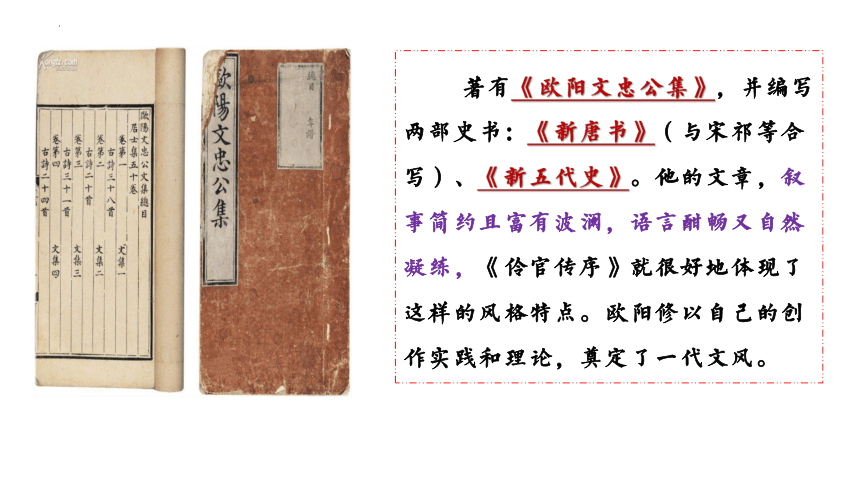 歐陽文忠公文集總目
居士集五十卷
卷第一
文集一
古詩三十八首
卷第二
文集二
古詩二十首
卷第三
文集三
古詩三十一首
卷第四
文集四
古詩二十四首
歐陽文忠公集
總目
年譜
著有《欧阳文忠公集》，并编写
两部史书：《新唐书》（与宋祁等合
写）、《新五代史》。他的文章，叙
事简约且富有波澜，语言酣畅又自然
凝练，《伶官传序》就很好地体现了
这样的风格特点。欧阳修以自己的创
作实践和理论，奠定了一代文风。